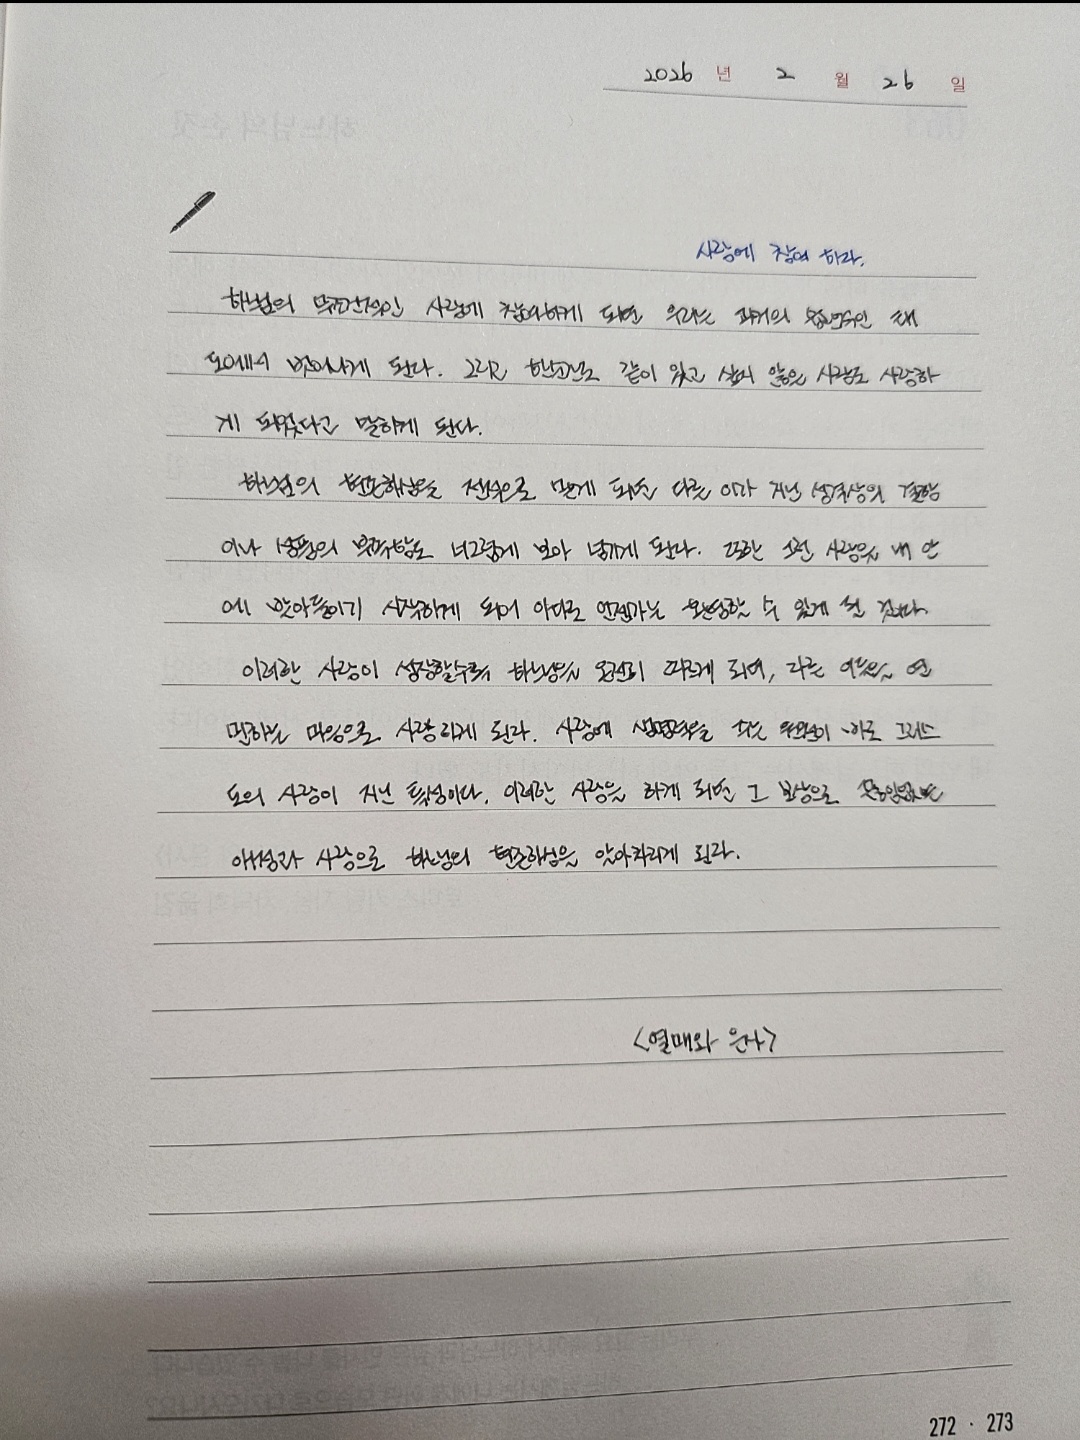 2026 년 2 월 26 일
사랑에 참여 하라.
하느님의 무조건적인 사랑에 참여하게 되면 우리는 과거의 습관적인 태
도에서 벗어나게 된다. 그리고 한순간도 같이 있고 싶지 않은 사람도 사랑하
게 되었다고 말하게 된다.
하느님의 현존하심을 전적으로 믿게 되면 다른 이가 지닌 성격상의 결함
이나 성품의 부족함도 너그럽게 보아 넘기게 된다. 또한 그런 사랑을 내 안
에 받아들이기 시작하게 되어 이다음 언젠가는 완성할 수 있게 될 것이다.
이러한 사랑이 성장할수록 하느님을 온전히 따르게 되며, 다른 이들을 연
민하는 마음으로 사랑하게 된다. 사랑에 생명력을 주는 우선이 바로 그리스
도의 사랑이 지닌 특성이다. 이러한 사랑을 하게 되면 그 보상으로 끊임없는
애정과 사랑으로 하느님의 현존하심을 알아차리게 된다.
<열매와 은사>
272 · 273